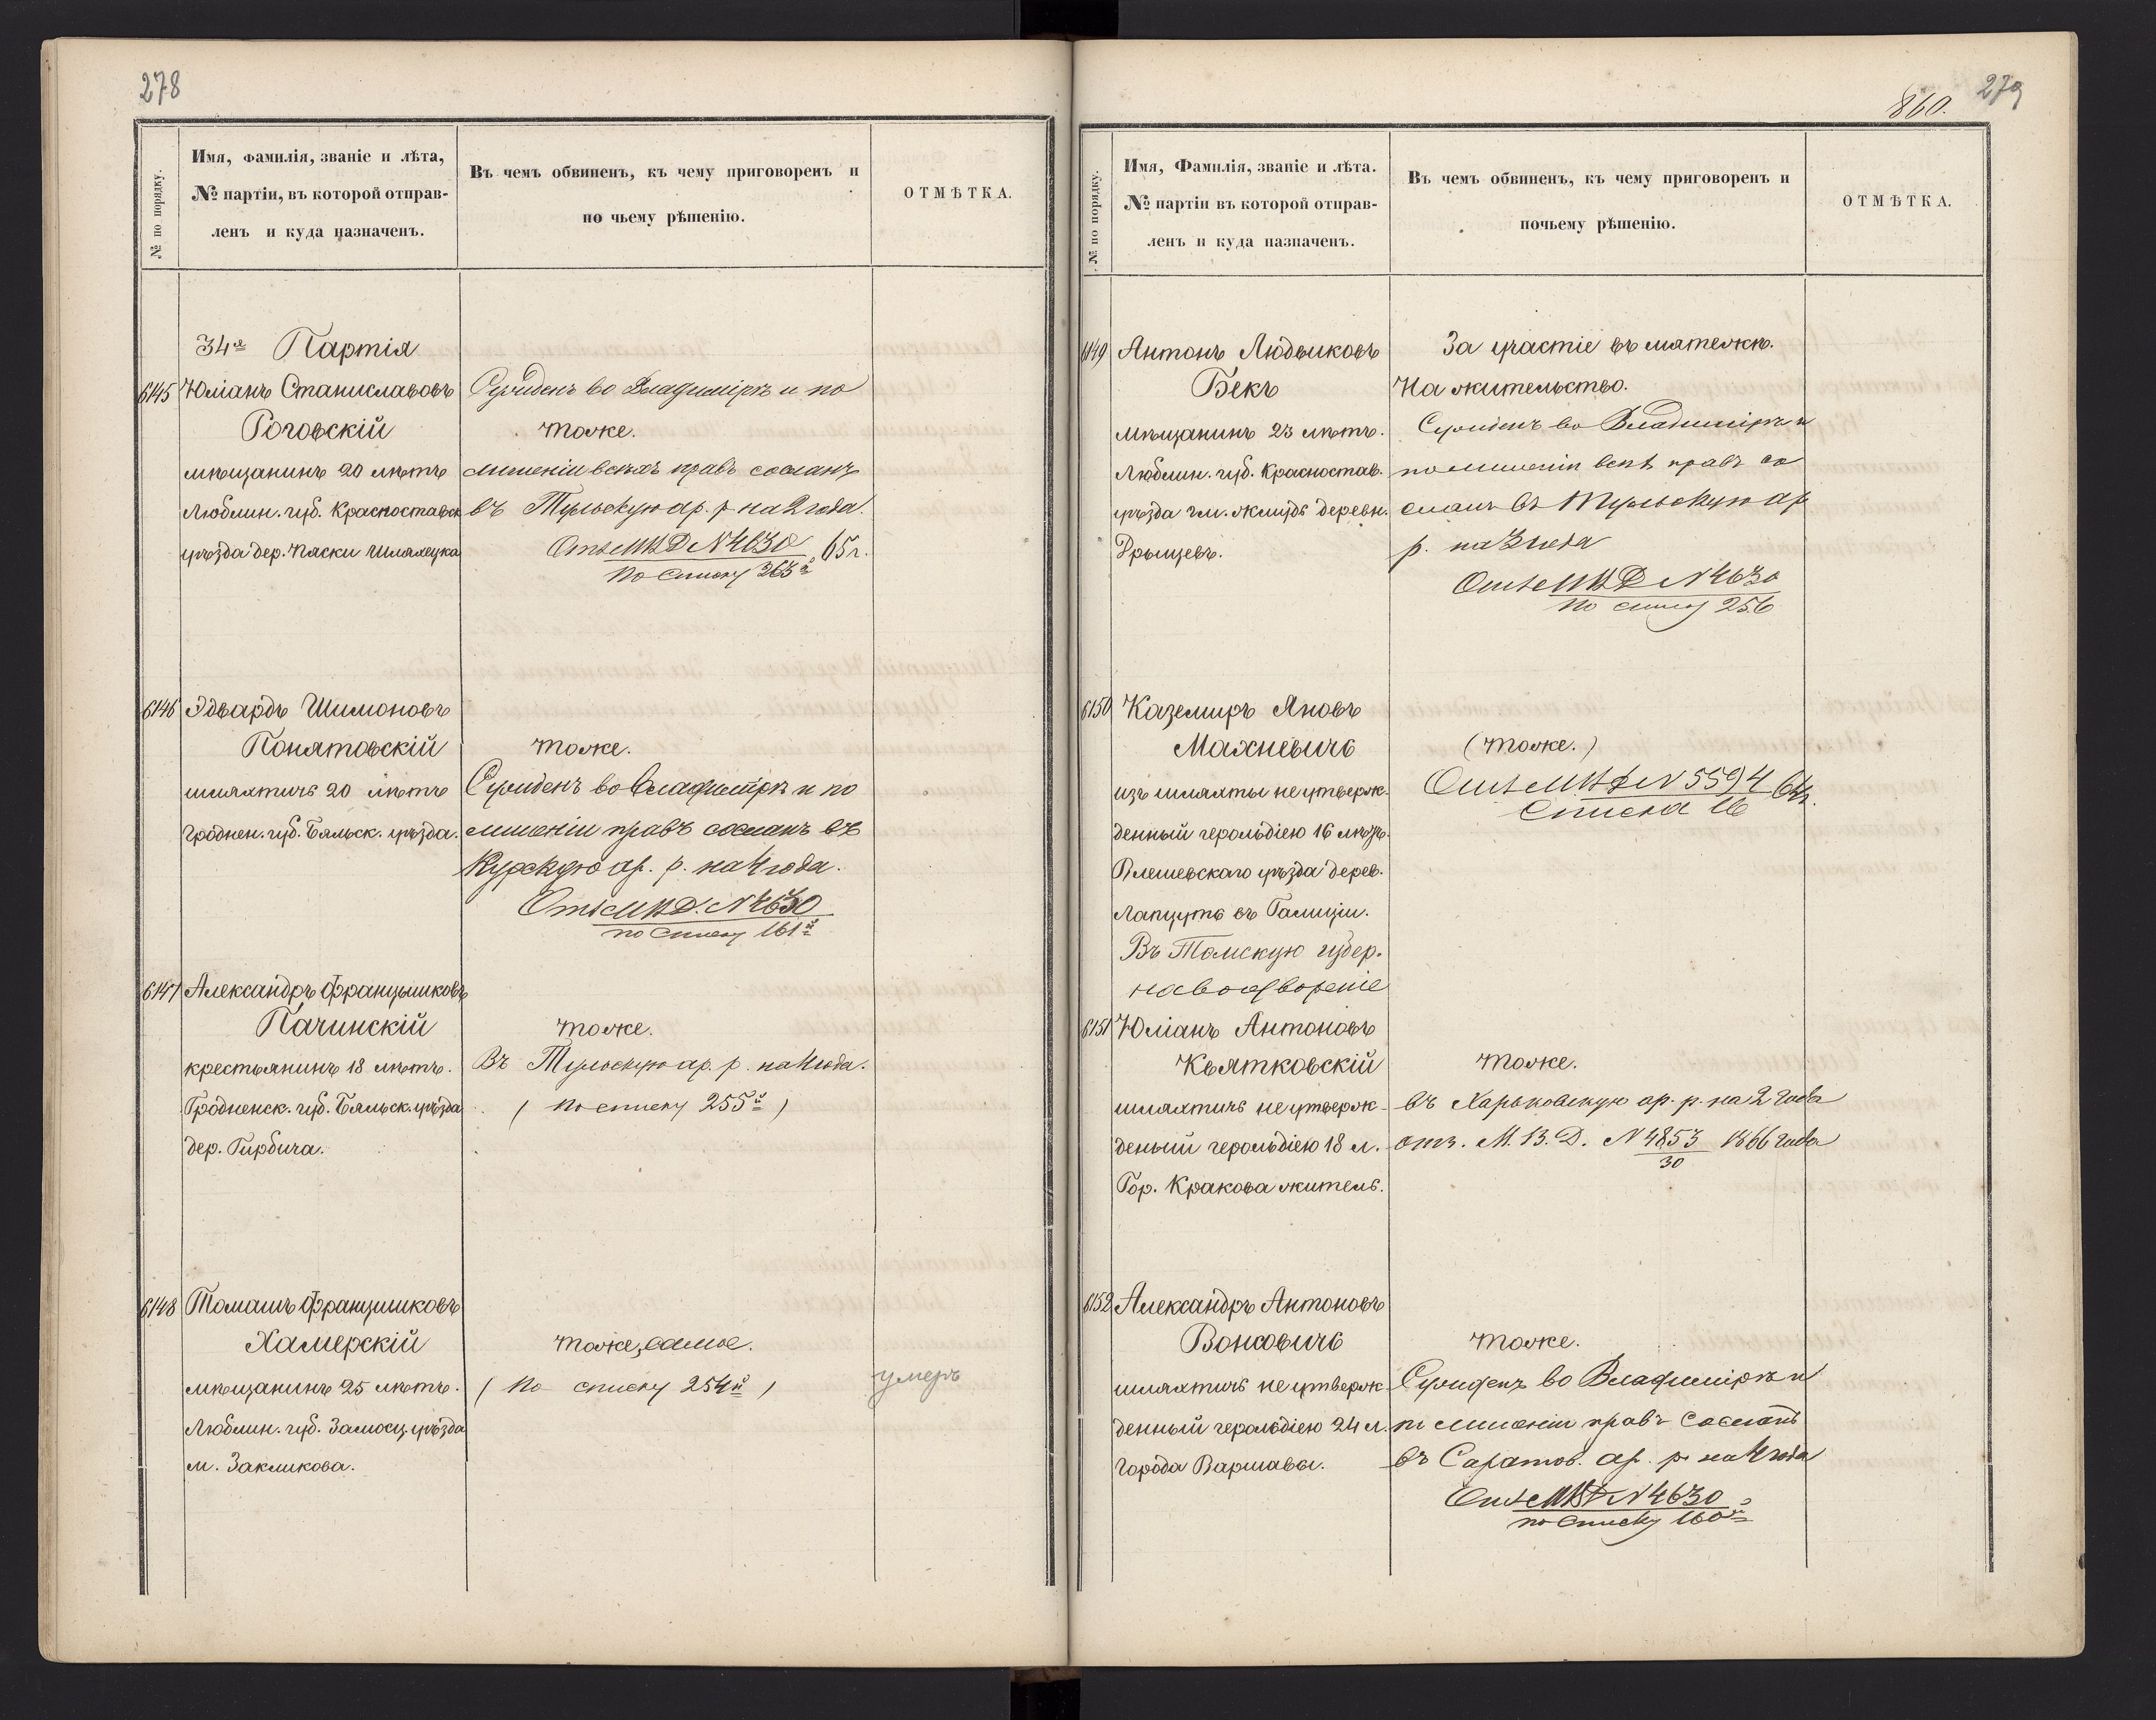 278
№ по порядку.
Имя, фамилія, званіе и лѣта,
№ партіи, въ которой отправ-
ленъ и куда назначенъ.
Въ чемъ обвиненъ, къ чему приговоренъ и
по чьему рѣшенію.
ОТМѢТКА.
34я Партія
6145 Юліанъ Станиславовъ
Роговскій
мѣщанинъ 20 лѣтъ
Люблин. губ. Красностав
уѣзда дер. Пяски Шляхецка
Сужденъ во Владимірѣ и по
тоже.
лишеніи всѣхъ правъ сосланъ
въ Тульскую ар. р на 2 года.
Отъ М В Д № 4630 65 г.
по списку 263й
6146 Эдвардъ Шимоновъ
Понятовскій
шляхтичъ 20 лѣтъ
Гроднен. губ. Бяльск. уѣзда.
тоже.
Сужденъ во Владимірѣ и по
лишеніи правъ сосланъ въ
Курскую ар. р. на 4 года.
Отъ М В Д. № 4630
по списку 161й
6147 Александръ Францышковъ
Пачинскій
крестьянинъ 18 лѣтъ.
Гродненск. губ. Бяльск. уѣзда
дер. Гирбича.
тоже.
Въ Тульскую ар. р. на 4 года.
( по списку 255й )
6148 Томашъ Францишковъ
Хамерскій
мѣщанинъ 25 лѣтъ.
Люблин. губ. Замосц. уѣзда
м. Закликова.
тоже, самое.
( по списку 254й )
умеръ
279
860.
№ по порядку.
Имя, Фамилія, званіе и лѣта.
№ партіи въ которой отправ-
ленъ и куда назначенъ.
Въ чемъ обвиненъ, къ чему приговоренъ и
почьему рѣшенію.
ОТМѢТКА.
6149 Антонъ Людвиковъ
Бекъ
мѣщанинъ 23 лѣтъ.
Люблин. губ. Красностав.
уѣзда гм. деревн.
Дрыщевъ.
За участіе въ мятежѣ.
На жительство.
Сужденъ во Владимірѣ и
по лишеніи всѣхъ правъ со
сланъ въ Тульскую ар
р. на 3 года
Отъ М В Д № 4630
по списку 256
6150 Каземиръ Яновъ
Махневичъ
изъ шляхты не утверж-
денный герольдіею 16 лѣтъ.
Плешевскаго уѣзда дерев.
Лапцутъ въ Галиціи.
Въ Томскую губер.
на водвореніе
(тоже.)
Отъ М В Д № 5594
списка 16
6151 Юліанъ Антоновъ
Кьятковскій
шляхтичъ не утверж-
деный герольдіею 18 л.
Гор. Кракова житель.
тоже.
въ Харьковскую ар. р. на 2 года
отз. М. В. Д. № 4853 1866 года
30
6152 Александръ Антоновъ
Вонсовичъ
шляхтичъ не утверж-
денный герольдіею 24 л.
города Варшавы.
тоже.
Сужденъ во Владимірѣ и
по лишеніи правъ сосланъ
въ Саратов. ар. р. на 4 года
Отъ М В Д № 4630
по списку 160й